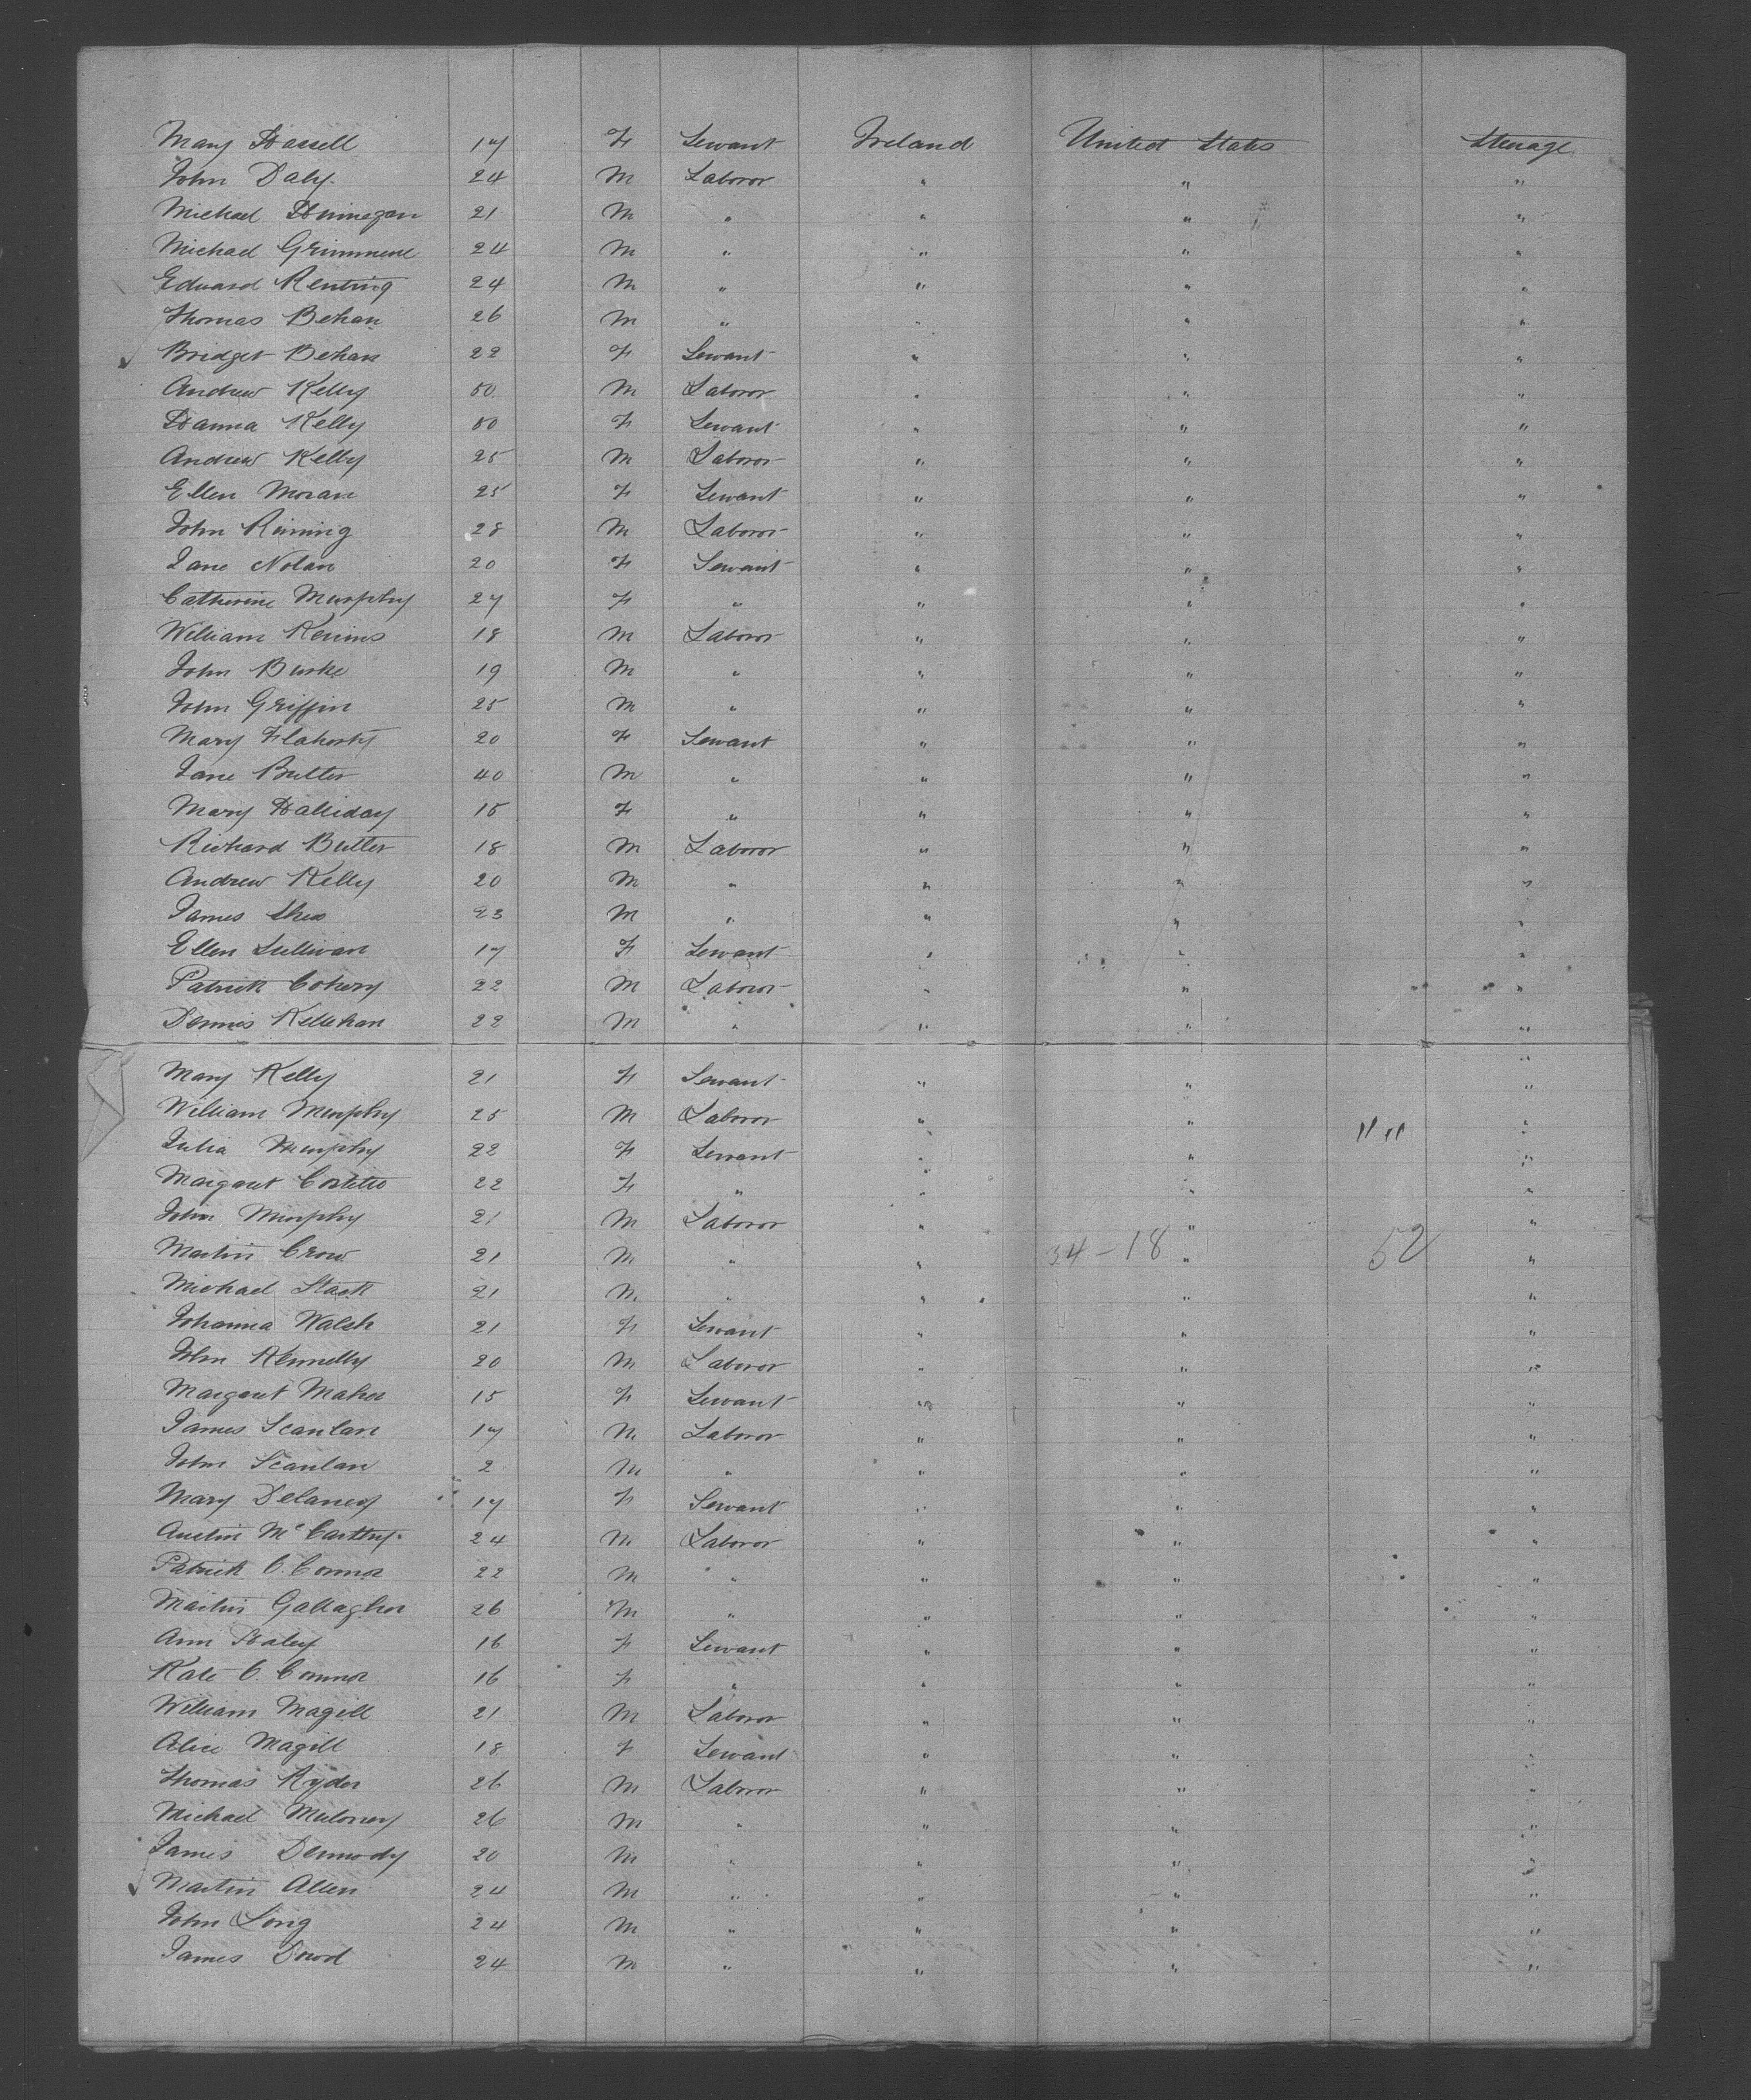 Mary Hassell 17 F Servant Ireland United States Steerage
John Daly. 24 M Laboror " " "
Michael Hinnegan 21 M " " " "
Michael 24 M " " " "
Eduard 24 M " " " "
Thomas Behan 26 M " " " "
Bridget Behan 22 F Servant " " "
Andrew Kelly 50 M Laboror " " "
Hanna Kelly 50 F Servant " " "
Andrew Kelly 25 M Laboror " " "
Ellen Moran 25 F Servant " " "
John 28 M Laboror " " "
Jane Nolan 20 F Servant " " "
Catherine Murphy 27 F " " " "
William 18 M Laboror " " "
John Burke 19 M " " " "
John Griffin 25 M " " " "
Mary Flaherty 20 F Servant " " "
Jane Butler 40 M " " " "
Mary Halliday 15 F " " " "
Richard Butler 18 M Laboror " " "
Andrew Kelly 20 M " " " "
James Shea 23 M " " " "
Ellen Sullivan 17 F Servant " " "
Patrick 22 M Laboror " " "
Dennis Kellehan 22 M " " " "
Mary Kelly 21 F Servant " " "
William Murphy 25 M Laboror " " " "
Julia Murphy 22 F Servant " " "
Margaret Costello 22 F " " " "
John Murphy 21 M Laboror " " "
Martin Crow 21 M " " 34-18 " 52 "
Michael Stack 21 M " " " "
Johanna Walsh 21 F Servant " " "
John Kennelly 20 M Laboror " " "
Margaret Maher 15 F Servant " " "
James Scanlan 17 M Laboror " " "
John Scanlan 2 M " " " "
Mary Delaney 17 F Servant " " "
Austin McCarthy. 24 M Laboror " " "
Patrick O. Connor 22 M " " " "
Martin Gallagher 26 M " " " "
Ann Haley 16 F Servant " " "
Kate O. Connor 16 F " " " "
William Magill 21 M Laboror " " "
Alice Magill 18 F Servant " " "
Thomas Ryder 26 M Laboror " " "
Michael Muloney 26 M " " " "
James Dermody 20 M " " " "
Martin Allen 24 M " " " "
John Long 24 M " " " "
James Dowd 24 M " " " "